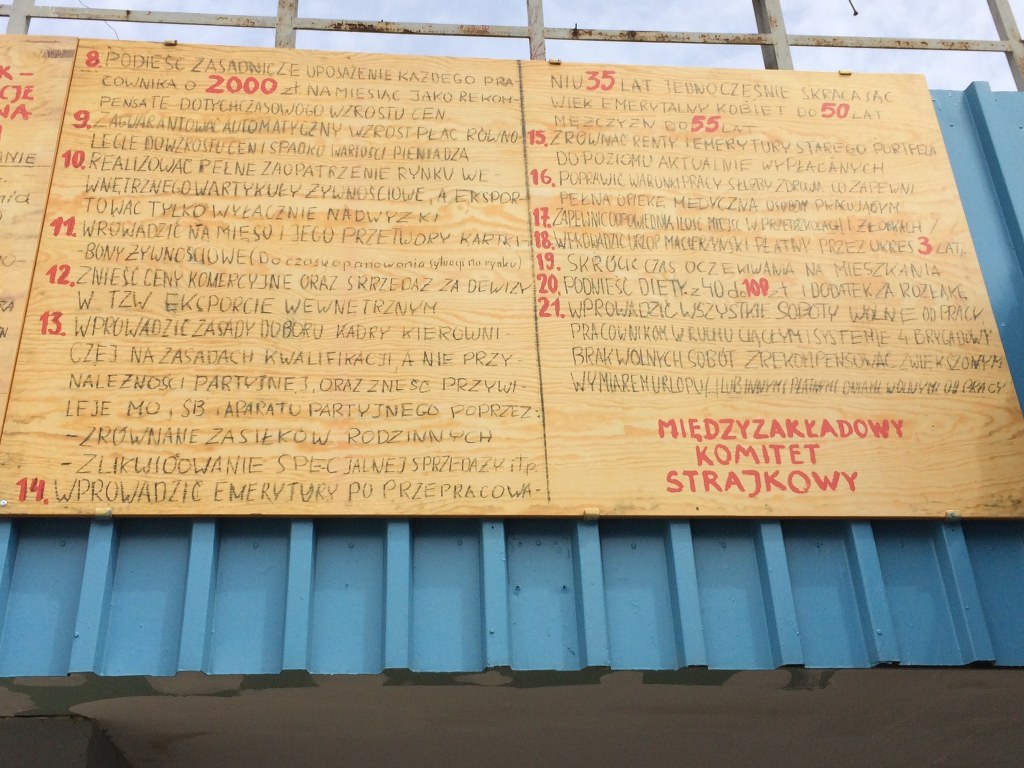 K-
CJE
NA
ANIE
nia
O-
RA
8. PODIEŚĆ ZASADNICZE UPOSAŻENIE KAŻDEGO PRA-
COWNIKA O 2000 zł NA MIESIĄC JAKO REKOM-
PENSATE DOTYCHCZASOWEGO WZROSTU CEN.
9. ZAGWARANTOWAĆ AUTOMATYCZNY WZROST PŁAC RÓWNO-
LEGLE DO WZROSTU CEN I SPADKU WARTOŚCI PIENIĄDZA
10. REALIZOWAĆ PEŁNE ZAOPATRZENIE RYNKU WE-
WNĘTRZNEGO W ARTYKUŁY ŻYWNOŚCIOWE, A EKSPOR-
TOWAĆ TYLKO WYŁĄCZNIE NADWYŻKI
11. WROWADZIĆ NA MIĘSO I JEGO PRZETWORY KARTKI-
-BONY ŻYWNOŚCIOWE (Do czasu opanowania sytuacji na rynku)
12. ZNIEŚĆ CENY KOMERCYJNE ORAZ SRRZEDAŻ ZA DEWIZY
W TZW EKSPORCIE WEWNĘTRZNYM
13. WPROWADZIĆ ZASADY DOBORU KADRY KIEROWNI
CZEJ NA ZASADACH KWALIFIKACJI, A NIE PRZY-
NALEŻNOŚCI PARTYJNEJ, ORAZ ZNEŚĆ PRZYWI-
LEJE MO, SB i APARATU PARTYJNEGO POPRZEZ:
- ZRÓWNANE ZASIŁKÓW RODZINNYCH
- ZLIKWIDOWANIE SPECJALNEJ SPRZEDAŻY itp.
14. WPROWADZIĆ EMERYTURY PO PRZEPRACOWA-
NIU 35 LAT JEDNOCZEŚNIE SKRACAJĄC
WIEK EMERYTALNY KOBIET DO 50 LAT
MĘŻCZYZN DO 55 LAT
15. ZRÓWNAĆ RENTY I EMERYTURY STAREGO PORTFELA
DO POZIOMU AKTUALNIE WYPŁACANYCH
16. POPRAWIĆ WARUNKI PRACY SŁUŻBY ZDROWIA CO ZAPEWNI
PEŁNĄ OPIEKĘ MEDYCZNĄ OSOBOM PRACUJĄCYM
17. ZAPEWNIĆ ODPOWIEDNIĄ ILOŚĆ MIEJSC W PRZEDSZKOLACH I ŻŁOBKACH
18. WPROWADZIĆ URLOP MACIERZYŃSKI PŁATNY PRZEZ OKRES 3 LAT.
19. SKRÓCIĆ CZAS OCZEKIWANIA NA MIESZKANIA
20. PODNIEŚĆ DIETY z 40 do 100 zł I DODATEK ZA ROZŁĄKĘ
21. WPROWADZIĆ WSZYSTKIE SOBOTY WOLNE OD PRACY
PRACOWNIKOM W RUCHU CIĄGŁYM I SYSTEMIE 4 BRYGADOWY
BRAK WOLNYCH SOBÓT ZREKOMPENSOWAĆ ZWIĘKSZONYM
WYMIAREM URLOPU, LUB INNYMI PŁATNYMI DNIAMI WOLNYMI OD PRACY
MIĘDZYZAKŁADOWY
KOMITET
STRAJKOWY